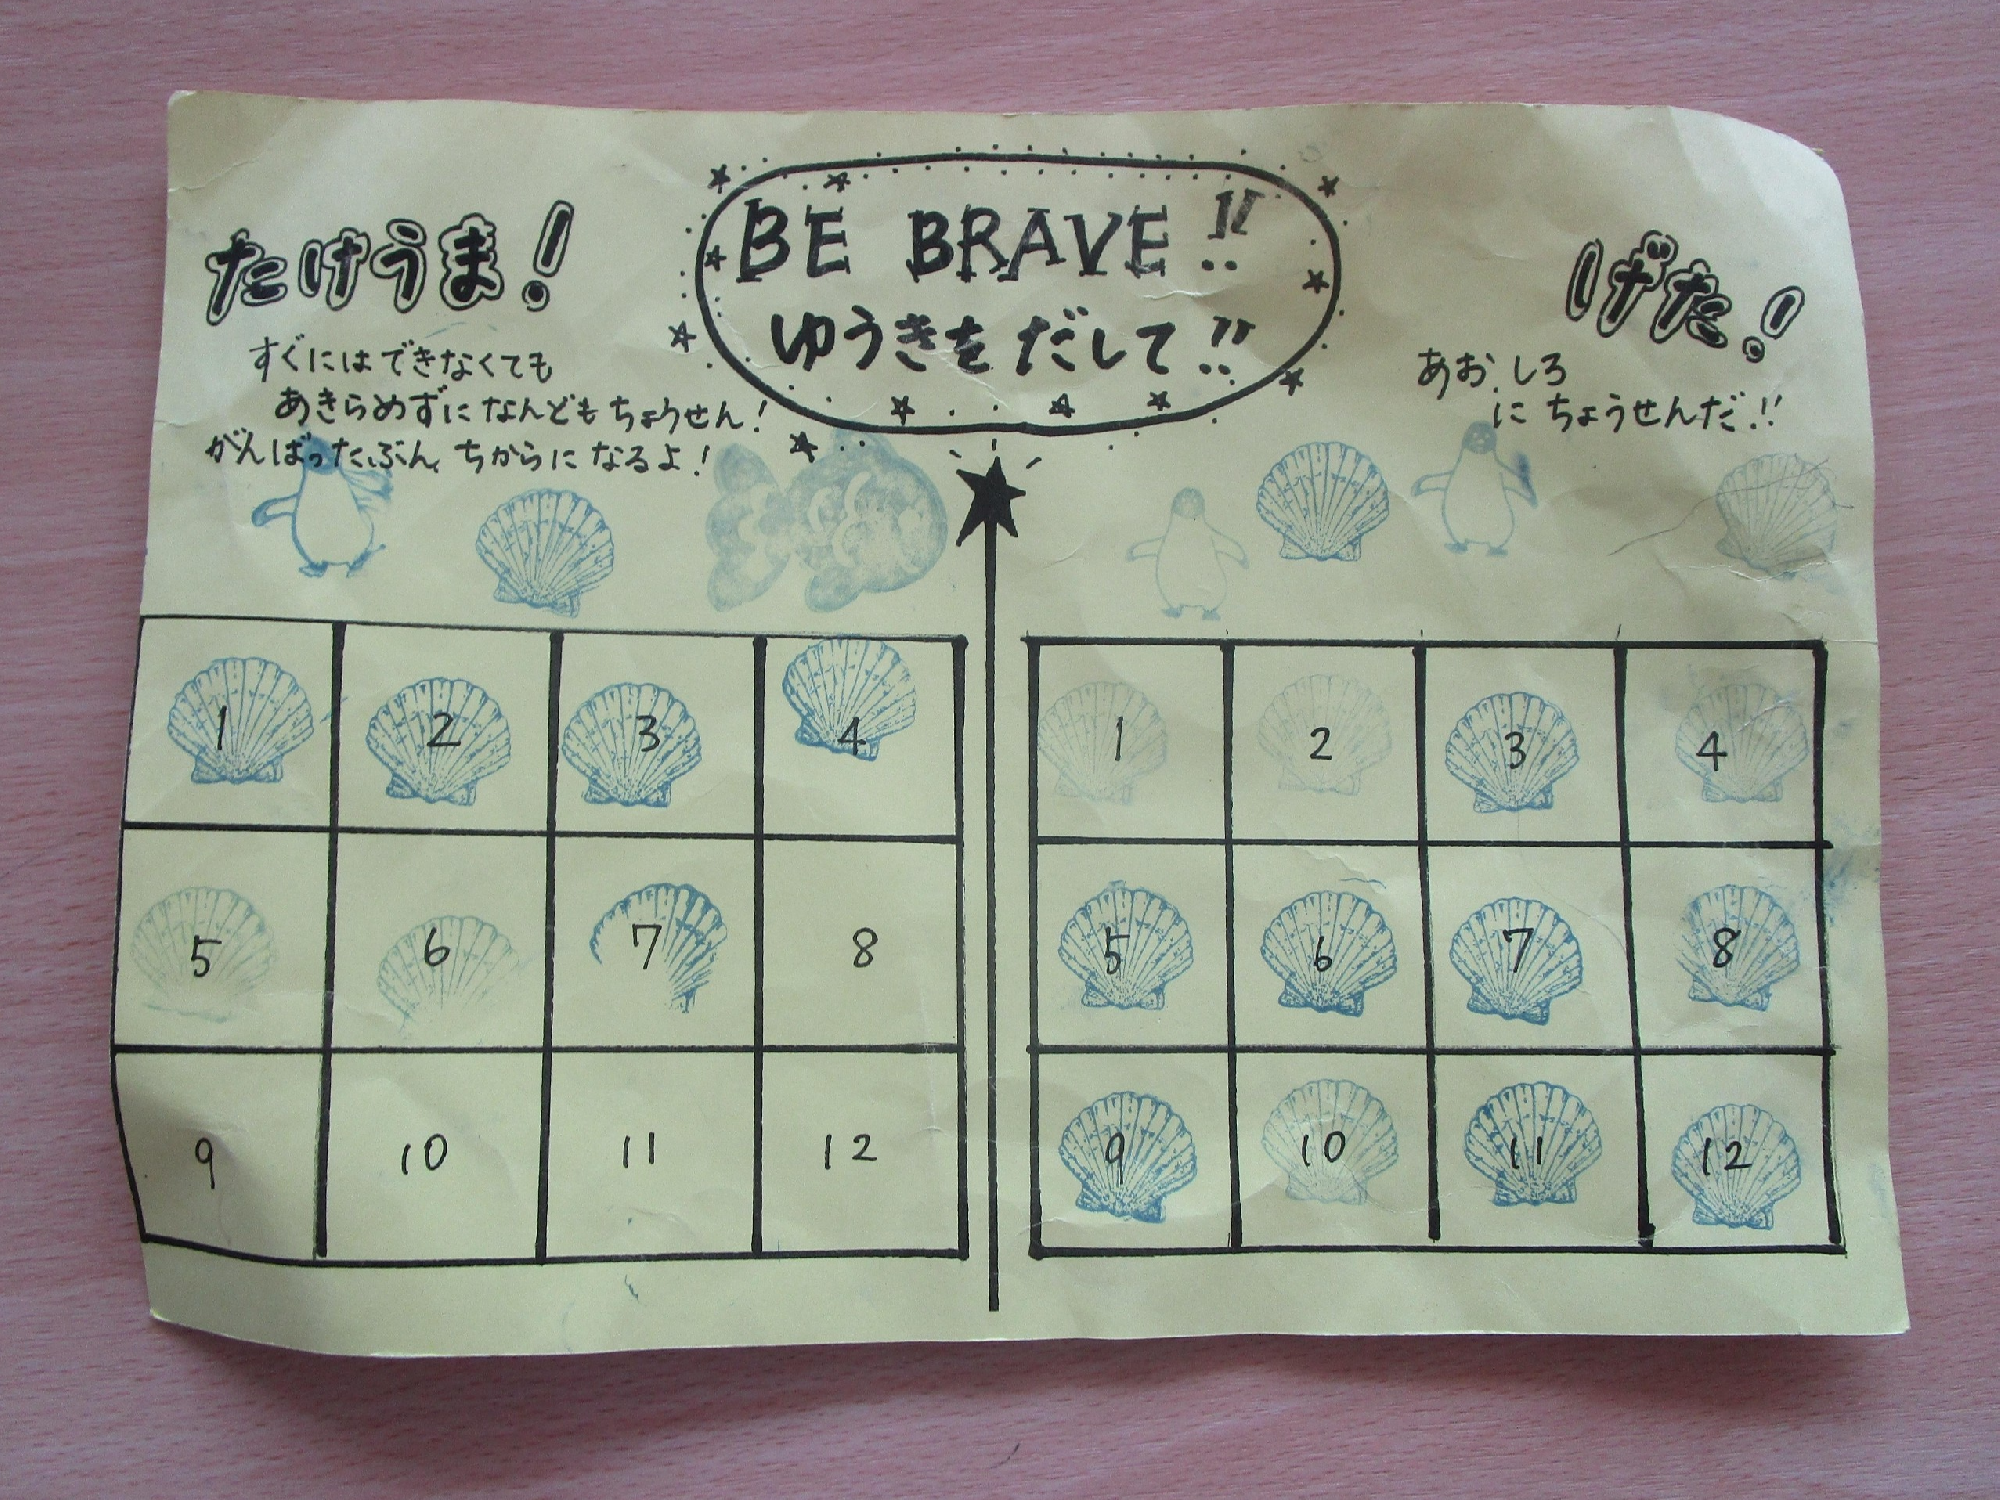 BE BRAVE!!
ゆうきをだして!!
たけうま!
すぐにはできなくても
あきらめずになんどもちょうせん!
がんばったぶん、ちからになるよ!
げた!
あお、しろ
にちょうせんだ!!
1 2 3 4
5 6 7 8
9 10 11 12
1 2 3 4
5 6 7 8
9 10 11 12